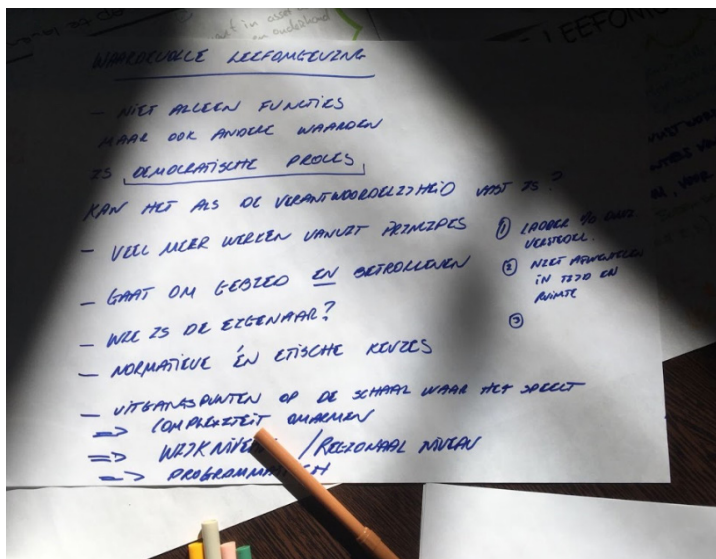 LEEFOM
WAARDEVOLLE LEEFOMGEVING
- NIET ALLEEN FUNCTIES
MAAR OOK ANDERE WAARDEN
IS DEMOCRATISCHE PROCES
KAN HET ALS DE VERANTWOORDELIJHEID VAST IS?
- VEEL MEER WERKEN VANUIT PRINZIPES
- GAAT OM GEBIED EN BETROKKENEN
- WIE IS DE EIGENAAR?
- NORMATIEVE ÉN ETISCHE KEUZES
- UITGANGSPUNTEN OP DE SCHAAL WAAR HET SPEELT
=> COMPLEXITEIT OMARMEN
=> WIJKNIVE /REGIONAAL NIVEAU
=> PROGRAMMA
① LADDER
VERSTEDEL.
② NIET AFWENTELEN
IN TIJD EN
RUIMTE
③